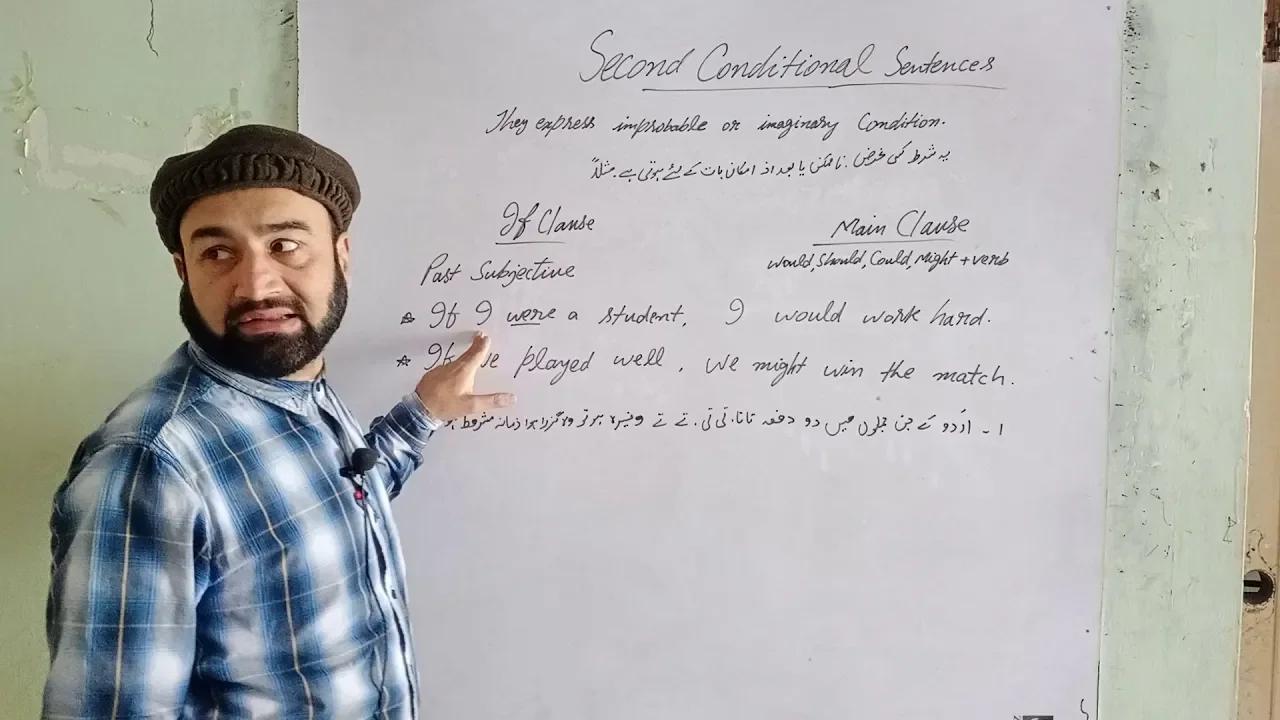 Second Conditional Sentences
They express improbable or imaginary Condition.
یہ شرط کسی فرضی، ناممکن یا بعد از امکان بات کے لئے ہوتی ہے۔ مثلاً
If Clause Main Clause
Past Subjective would, Should, Could, Might + verb
☆ If I were a student, I would work hard.
☆ If we played well, we might win the match.
۱۔ اُردو کے جن جملوں میں دو دفعہ تا تا، تی تی، تے تے وغیرہ ہو تو وہ گزرا ہوا زمانہ مشروط